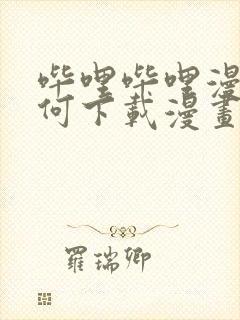 哔哩哔哩漫
何下載漫畫
羅瑞卿